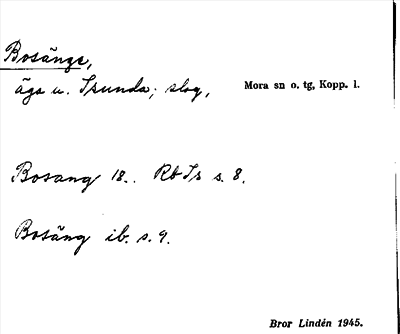 Bosänge,
äga u. Isunda; slog, Mora sn o. tg, Kopp. l.
Bosang 18.. Rb Is s. 8.
Bosäng ib. s. 9.
Bror Lindén 1945.